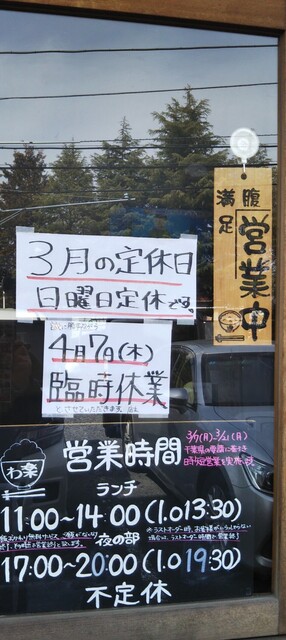 満腹
満足
営業中
3月の定休日
日曜日定休です。
4月7日(木)
臨時休業
とさせていただきます。
わ楽
営業時間
3/7(月)~3/21(月)
千葉県の要請に基き
ランチ
11:00~14:00(L.O13:30)
夜の部
17:00~20:00(L.O19:30)
不定休